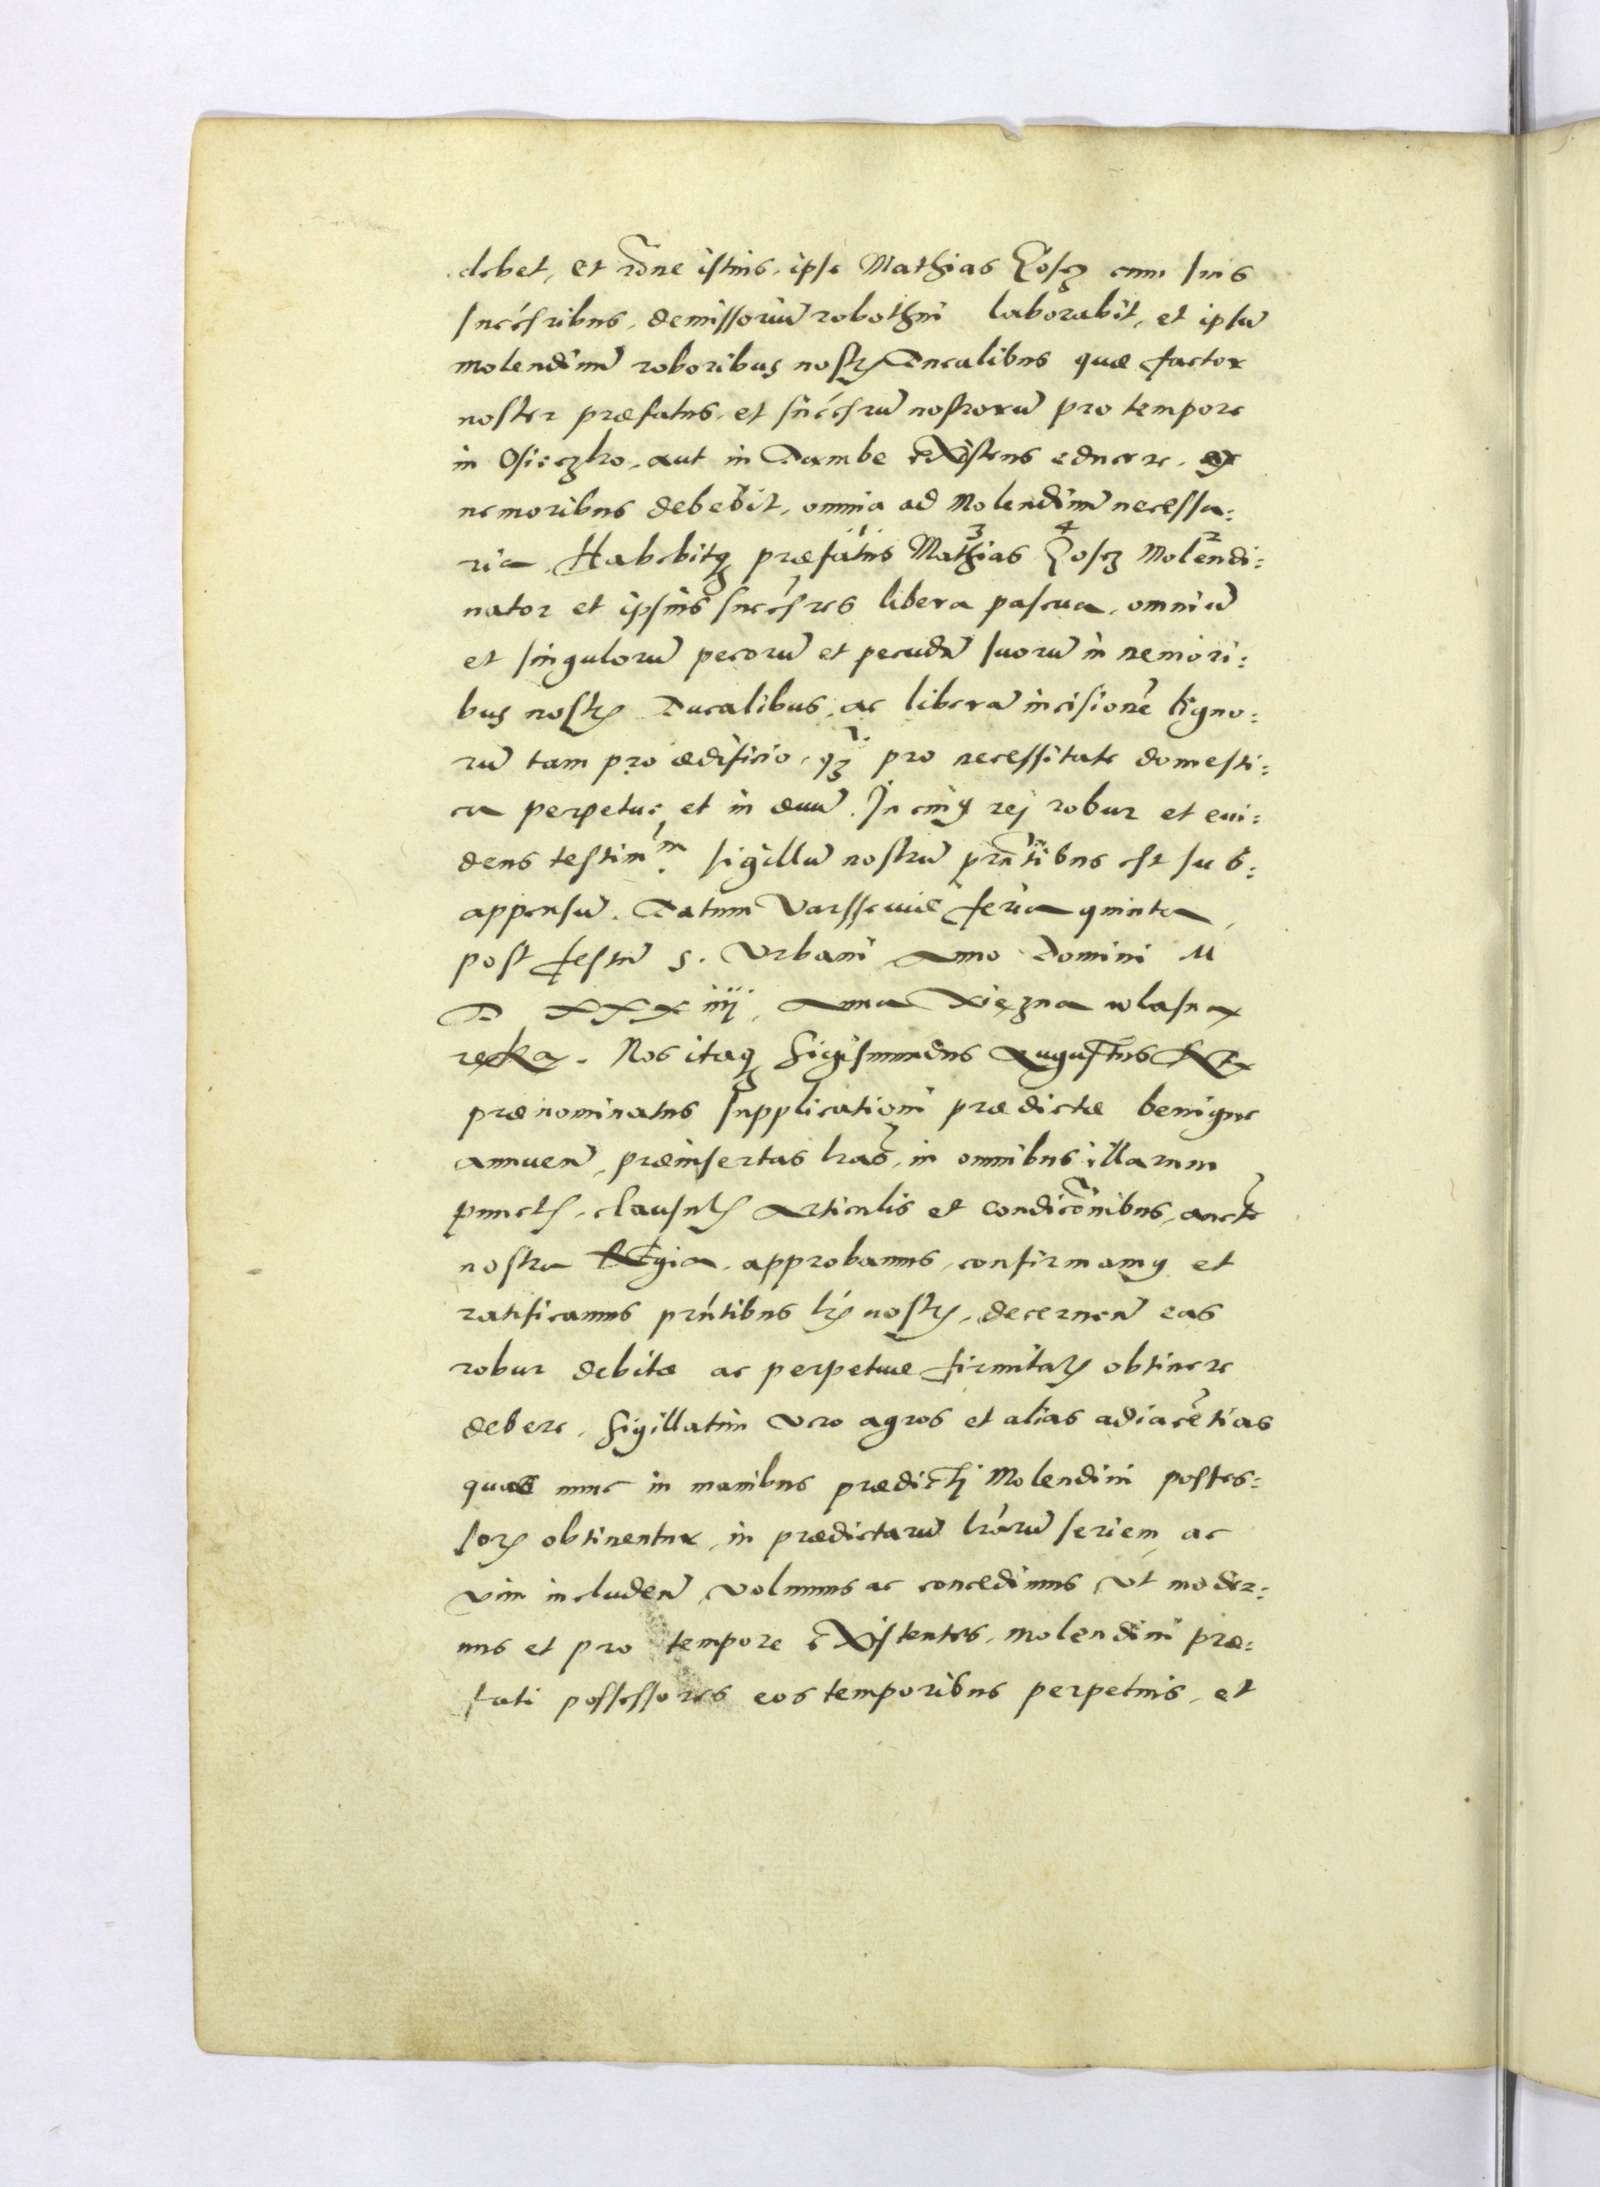 debet, et r̄one istius, ipse Mathias Łosz cum suis
succ̄sribus, demissoriū robothm laborabit, et ipsū
molendinū roboribus nostr̄ Ducalibus quæ factor
noster præfatus, et succ̄srū nostrorū pro tempore
in Osieczko, aut in Dambe eXistens educere, ex
nemoribus debebit, omnia ad Molendinū necessa:
ria. Habebitq præfatus Mathias Łosz Molendi:
nator et ipsius succ̄sres libera pascua, omniū
et singulorū pecorū et pecudū suorū in nemori:
bus nostr̄ Ducalibus, ac liberā incisionē ligno:
rū tam pro ædificio, q̄ȝ pro necessitate domesti:
ca perpetue et in æuū. In cui9 rej robur et eui:
dens testim̄m. sigillū nostrū prn̄tibus est sub:
appensū. Datum Varssouiæ feria quinta,
post festū S. Urbani Anno Domini M
D XXX iiij, Anna Xiężna własną
ręką. Nos itaq Sigismundus Augustus Rex
prænominatus supplicationi prædictæ benigne
annuen̄, præinsertas lr̄as, in omnibus illarum
punct̄, clausul̄ Articulis et condic̄onibus, auct̄e
nostra Regia, approbamus, confirmam9 et
ratificamus prn̄tibus lr̄ nostr̄, decernen̄ eas
robur debitæ ac perpetuæ firmitat̄ obtinere
debere, Sigillatim vero agros et alias adiacētias
quæ nunc in manibus prædictj Molendini posses:
sor̄ obtinentur, in prædictarū lr̄arū seriem, ac
vim includen̄, volumus ac concedimus Vt moder:
nus et pro tempore eXistentes, molendini præ:
fati possessores eos temporibus perpetuis, et